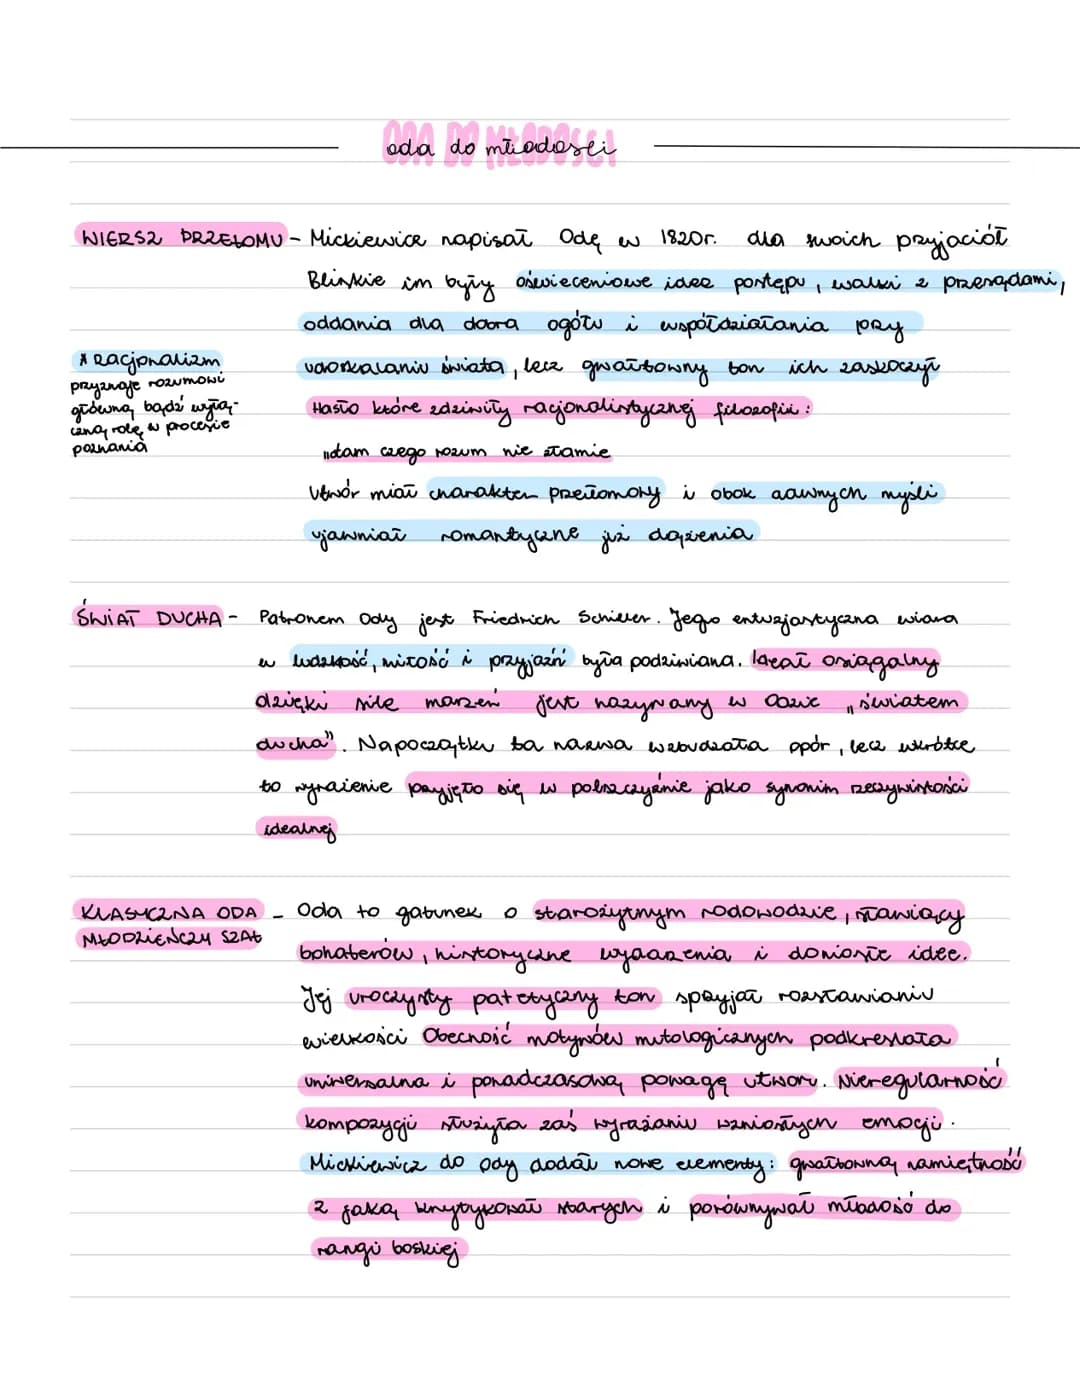 ODA DO MŁODOSCI
oda do młodości
WIERSZ PRZEŁOMU - Mickiewicz napisał Odę w 1820r. dla swoich przyjaciół
Bliskie im były oświeceniowe idee postępu, walki z przesądami,
oddania dla dobra ogółu i współdziałania przy
udoskalaniu świata, lecz gwałtowny ton ich zaskoczył
* racjonalizm
przyznaje rozumowi
główną bądź wyłą-
czną rolę w procesie
poznania
Hasło które zdziwiły racjonalistycznej filozofii:
„łam czego rozum nie złamie
Utwór miał charakter przełomowy i obok dawnych myśli
ujawniał romantyczne już dążenia
ŚWIAT DUCHA - Patronem Ody jest Friedrich Schiller. Jego entuzjastyczna wiara
w ludzkość, miłość i przyjaźń była podziwiana. Ideał osiągalny
dzięki sile marzeń jest nazywany w Odzie „światem
ducha". Napoczątku ta nazwa wzbudzała opór, lecz wkrótce
to wyrażenie przyjęło się w polszczyźnie jako synonim rzeczywistości
idealnej
KLASYCZNA ODA - Oda to gatunek o starożytnym rodowodzie, sławiący
MŁODZIEŃCZY SZAŁ
bohaterów, historyczne wydarzenia i doniosłe idee.
Jej uroczysty patetyczny ton sprzyjał rozsławianiu
wielkości Obecność motywów mitologicznych podkreslała
uniwersalna i ponadczasową powagę utworu. Nieregularność
kompozycji służyła zaś wyrażaniu wzniosłych emocji.
Mickiewicz do ody dodał nowe elementy: gwałtowną namiętność
z jaką krytykował starych i porównywał młodość do
rangi boskiej